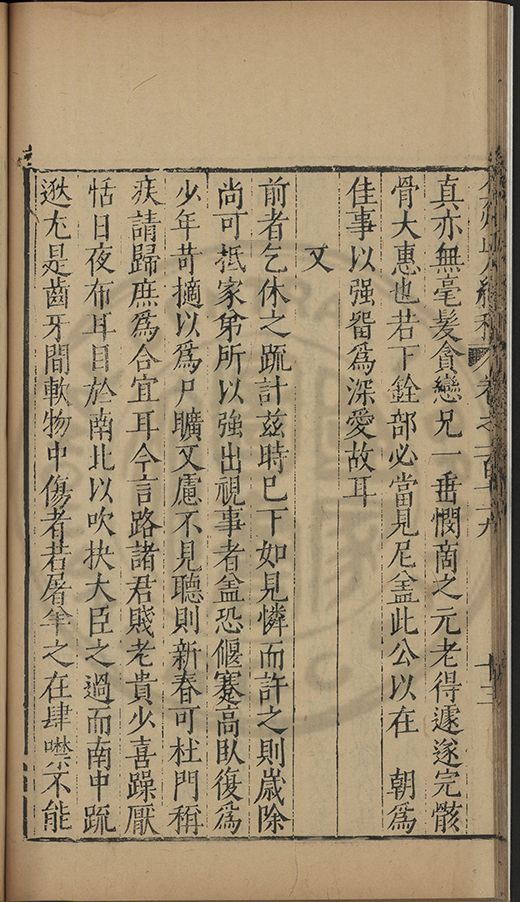 真亦無毫髮貪戀兄一垂憫啇之元老得遽遂完骸
骨大惠也若下銓部必當見尼盖此公以在　朝爲
佳事以强畱爲深愛故耳
又
前者乞休之疏計茲時已下如見憐而許之則歲除
尚可抵家弟所以強出視事者盖恐偃蹇高臥復爲
少年苛擿以爲尸曠又慮不見聽則新春可杜門稱
疾請歸庶爲合宜耳今言路諸君賤老貴少喜躁厭
恬日夜布耳目於南北以吹抉大臣之過而南中䟽
逖尢是齒牙間軟物中傷者若屠羊之在肆噤不能